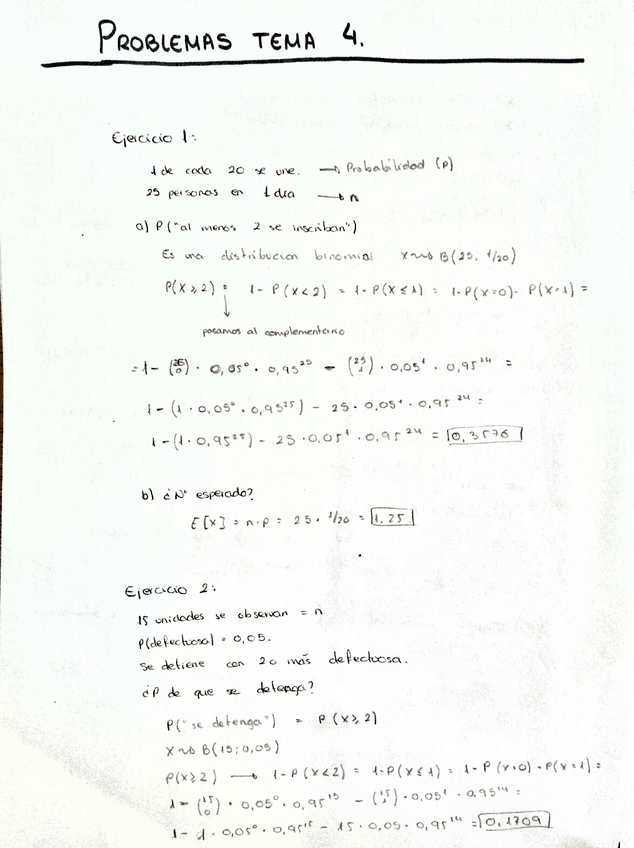 PROBLEMAS TEMA 4.
Ejercicio 1:
1 de cada 20 se une. → Probabilidad (p)
25 personas en 1 día → n
a) P("al menos 2 se inscriban")
Es una distribucion binomial X~B(25, 1/20)
P(X≥2) = 1-P(X<2) = 1-P(X≤1) = 1-P(X=0)-P(X=1) =
↓
pasamos al complementario
=1-(25 0)·0,05⁰·0,95²⁵ - (25 1)·0,05¹·0,95²⁴ =
1-(1·0,05⁰·0,95²⁵) - 25·0,05¹·0,95²⁴ =
1-(1·0,95²⁵) - 25·0,05¹·0,95²⁴ = 0,3576
b) ¿Nº esperado?
E[X] = n·p = 25·1/20 = 1.25
Ejercicio 2:
15 unidades se observan = n
P(defectuosa) = 0,05.
Se detiene con 2 o más defectuosa.
¿P de que se detenga?
P("se detenga") = P(X≥2)
X~B(15; 0,05)
P(X≥2) → 1-P(X<2) = 1-P(X≤1) = 1-P(X=0)-P(X=1) =
1-(15 0)·0,05⁰·0,95¹⁵ - (15 1)·0,05¹·0,95¹⁴ =
1-1·0,05⁰·0,95¹⁵ - 15·0,05·0,95¹⁴ = 0,1709